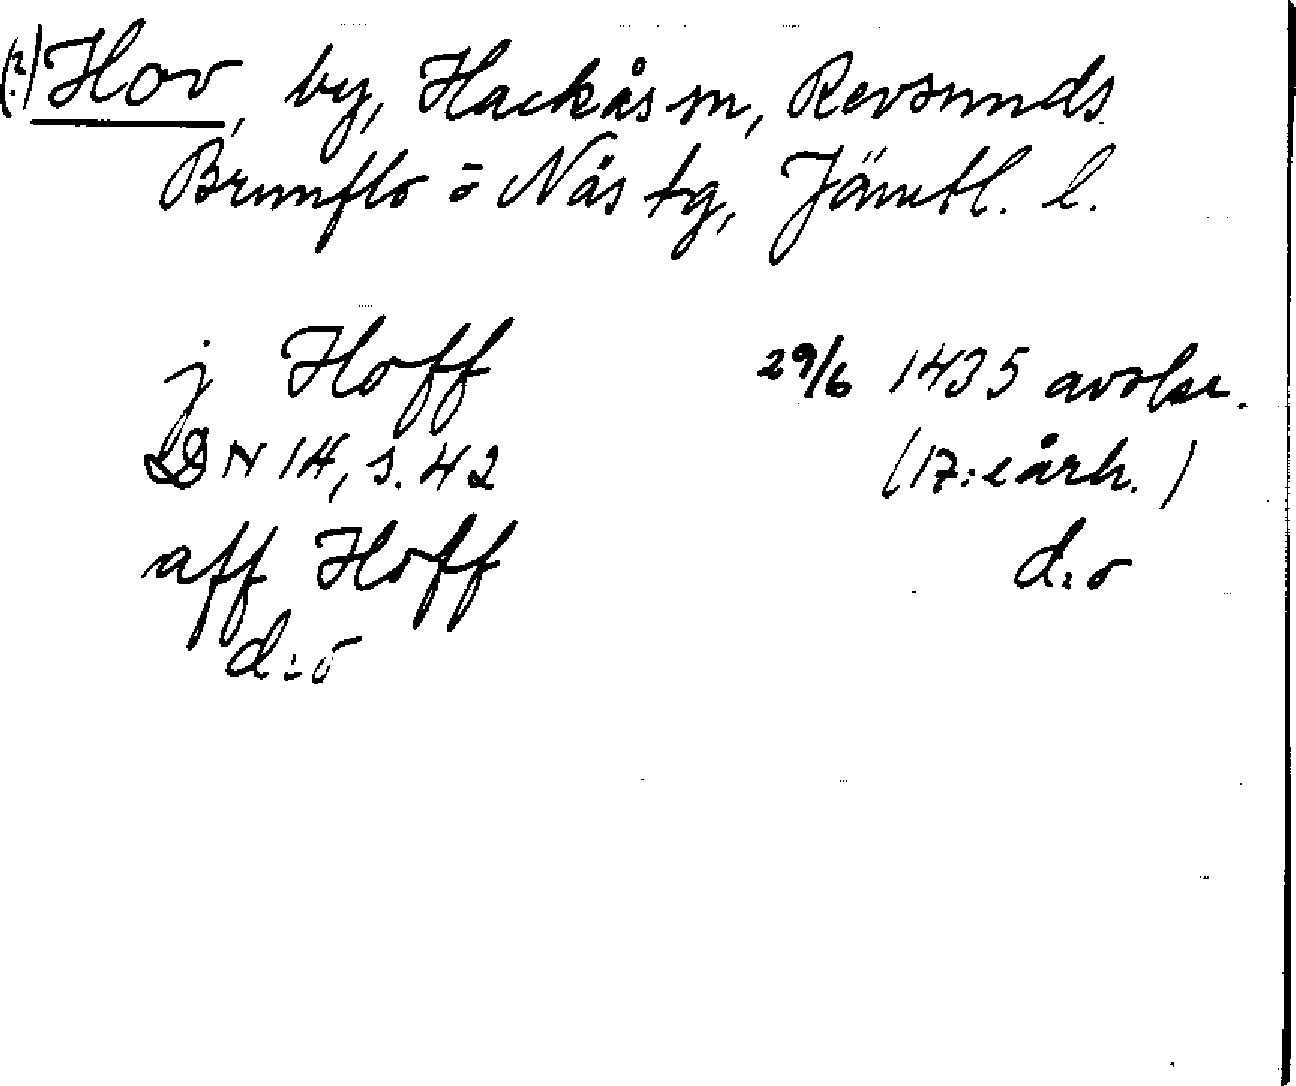 (?) Hov, by, Hackås sn, Revsunds
Brunflo o Näs tg, Jämtl. l.
j Hoff 29/6 1435 avskr.
DN 14, s. 42 (17:e årh.)
aff Hoff d:o
d:o